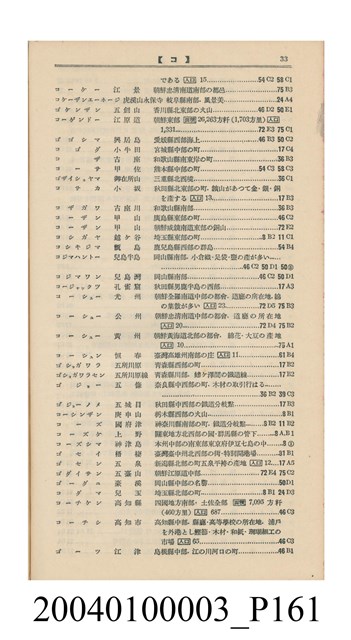 【コ】 33
である 人口 13 54 C2 58 C1
コーケー 江景 朝鮮忠清南道南部の都邑 75 B3
コケーザンエーホージ 虎渓山永保寺 岐阜縣南部・風景美 24 A4
ゴケンザン 五劍山 香川縣北東部の火山 46 D2 50 E1
コーゲンドー 江原道 朝鮮東部 面積 26,263方粁 (1,703方里) 人口
1,331 72 E3 75 C1
ゴゴシマ 興居島 愛媛縣西部海上 46 B3 50 C2
コゴタ 小牛田 宮城縣中部の町 17 C4
コザ 古座 和歌山縣南東岸の町 36 B3
コーサ 甲佐 熊本縣中部の町 54 C3 58 C3
ゴザイショヤマ 御在所山 三重縣北西境 36 C1
コサカ 小坂 秋田縣北東部の町. 鑛山があつて金・銀・銅
を産する 人口 13 17 B3
コザガワ 古座川 和歌山縣南部 36 B3
コーザン 甲山 廣島縣東部の町 46 C2
コーザン 甲山 朝鮮咸鏡南道東部の町 72 E2
コシガヤ 越ケ谷 埼玉縣東部の町 8 B2 11 C1
コシキジマ 甑島 鹿兒島縣西部の群島 54 B4
コジマハントー 兒島半島 岡山縣南部. 小倉織・足袋・鹽の産が多い
46 C2 50 D1 50
コジマワン 兒島灣 岡山縣南部 46 C2 50 D1
コジャクイワ 孔雀窟 秋田縣男鹿半島の西部 17 A3
コーシュー 光州 朝鮮全羅南道中部の都會. 道廳の所在地. 綿
の集散が多い 人口 23 72 D5 75 B3
コーシュー 公州 朝鮮忠清南道中部の都會. 道廳の所在地
人口 20 72 D4 75 B2
コーシュー 黄州 朝鮮黄海道北部の都會. 綿花・大豆の産地
人口 10 75 A1
コーシュン 恆春 臺灣高雄州南部の庄 人口 11 61 B4
ゴショガワラ 五所川原 青森縣西部の町 17 B2
ゴショガワラセン 五所川原線 青森縣川部. 鰺ヶ澤間の鐵道線 17 B2
ゴジョー 五條 奈良縣中西部の町. 木材の取引行はる
36 B2 39 C3
ゴジョーノメ 五城目 秋田縣中西部の鐵道分岐點 17 B3
コーシンザン 庚申山 栃木縣西部の火山 8 B1
コーズ 國府津 神奈川縣南部の町. 鐵道分岐點 8 B2 11 B2
コーズケ 上野 關東地方北西部の國・群馬縣の管下 8 A.B 1
コーズジマ 神津島 本州中部の南東部東京府伊豆七島の中 8
ゴセイ 梧棲 臺灣臺中州北西部の街・特別開港場 61 B2
ゴセン 五泉 新潟縣北部の町五泉平袴の産地 人口 12 17 A5
ゴダイサン 五臺山 朝鮮江原道中部 72 E4 75 C2
ゴーダニ 豪溪 岡山縣中部の名勝 50 D1
コダマ 兒玉 埼玉縣北部の町 8 B1 24 D2
コーチケン 高知縣 四國地方南部. 土佐全部 面積 7,095 方粁
(460方里) 人口 687 46 C3
コーチシ 高知市 高知縣中部. 縣廳・高等學校の所在地. 浦戸
を外港とし鰹節・木材・和紙・珊瑚細工の
市場 人口 65 46 C3
ゴーツ 江津 島根縣中部. 江の川河口の町 46 B1
20040100003_P161